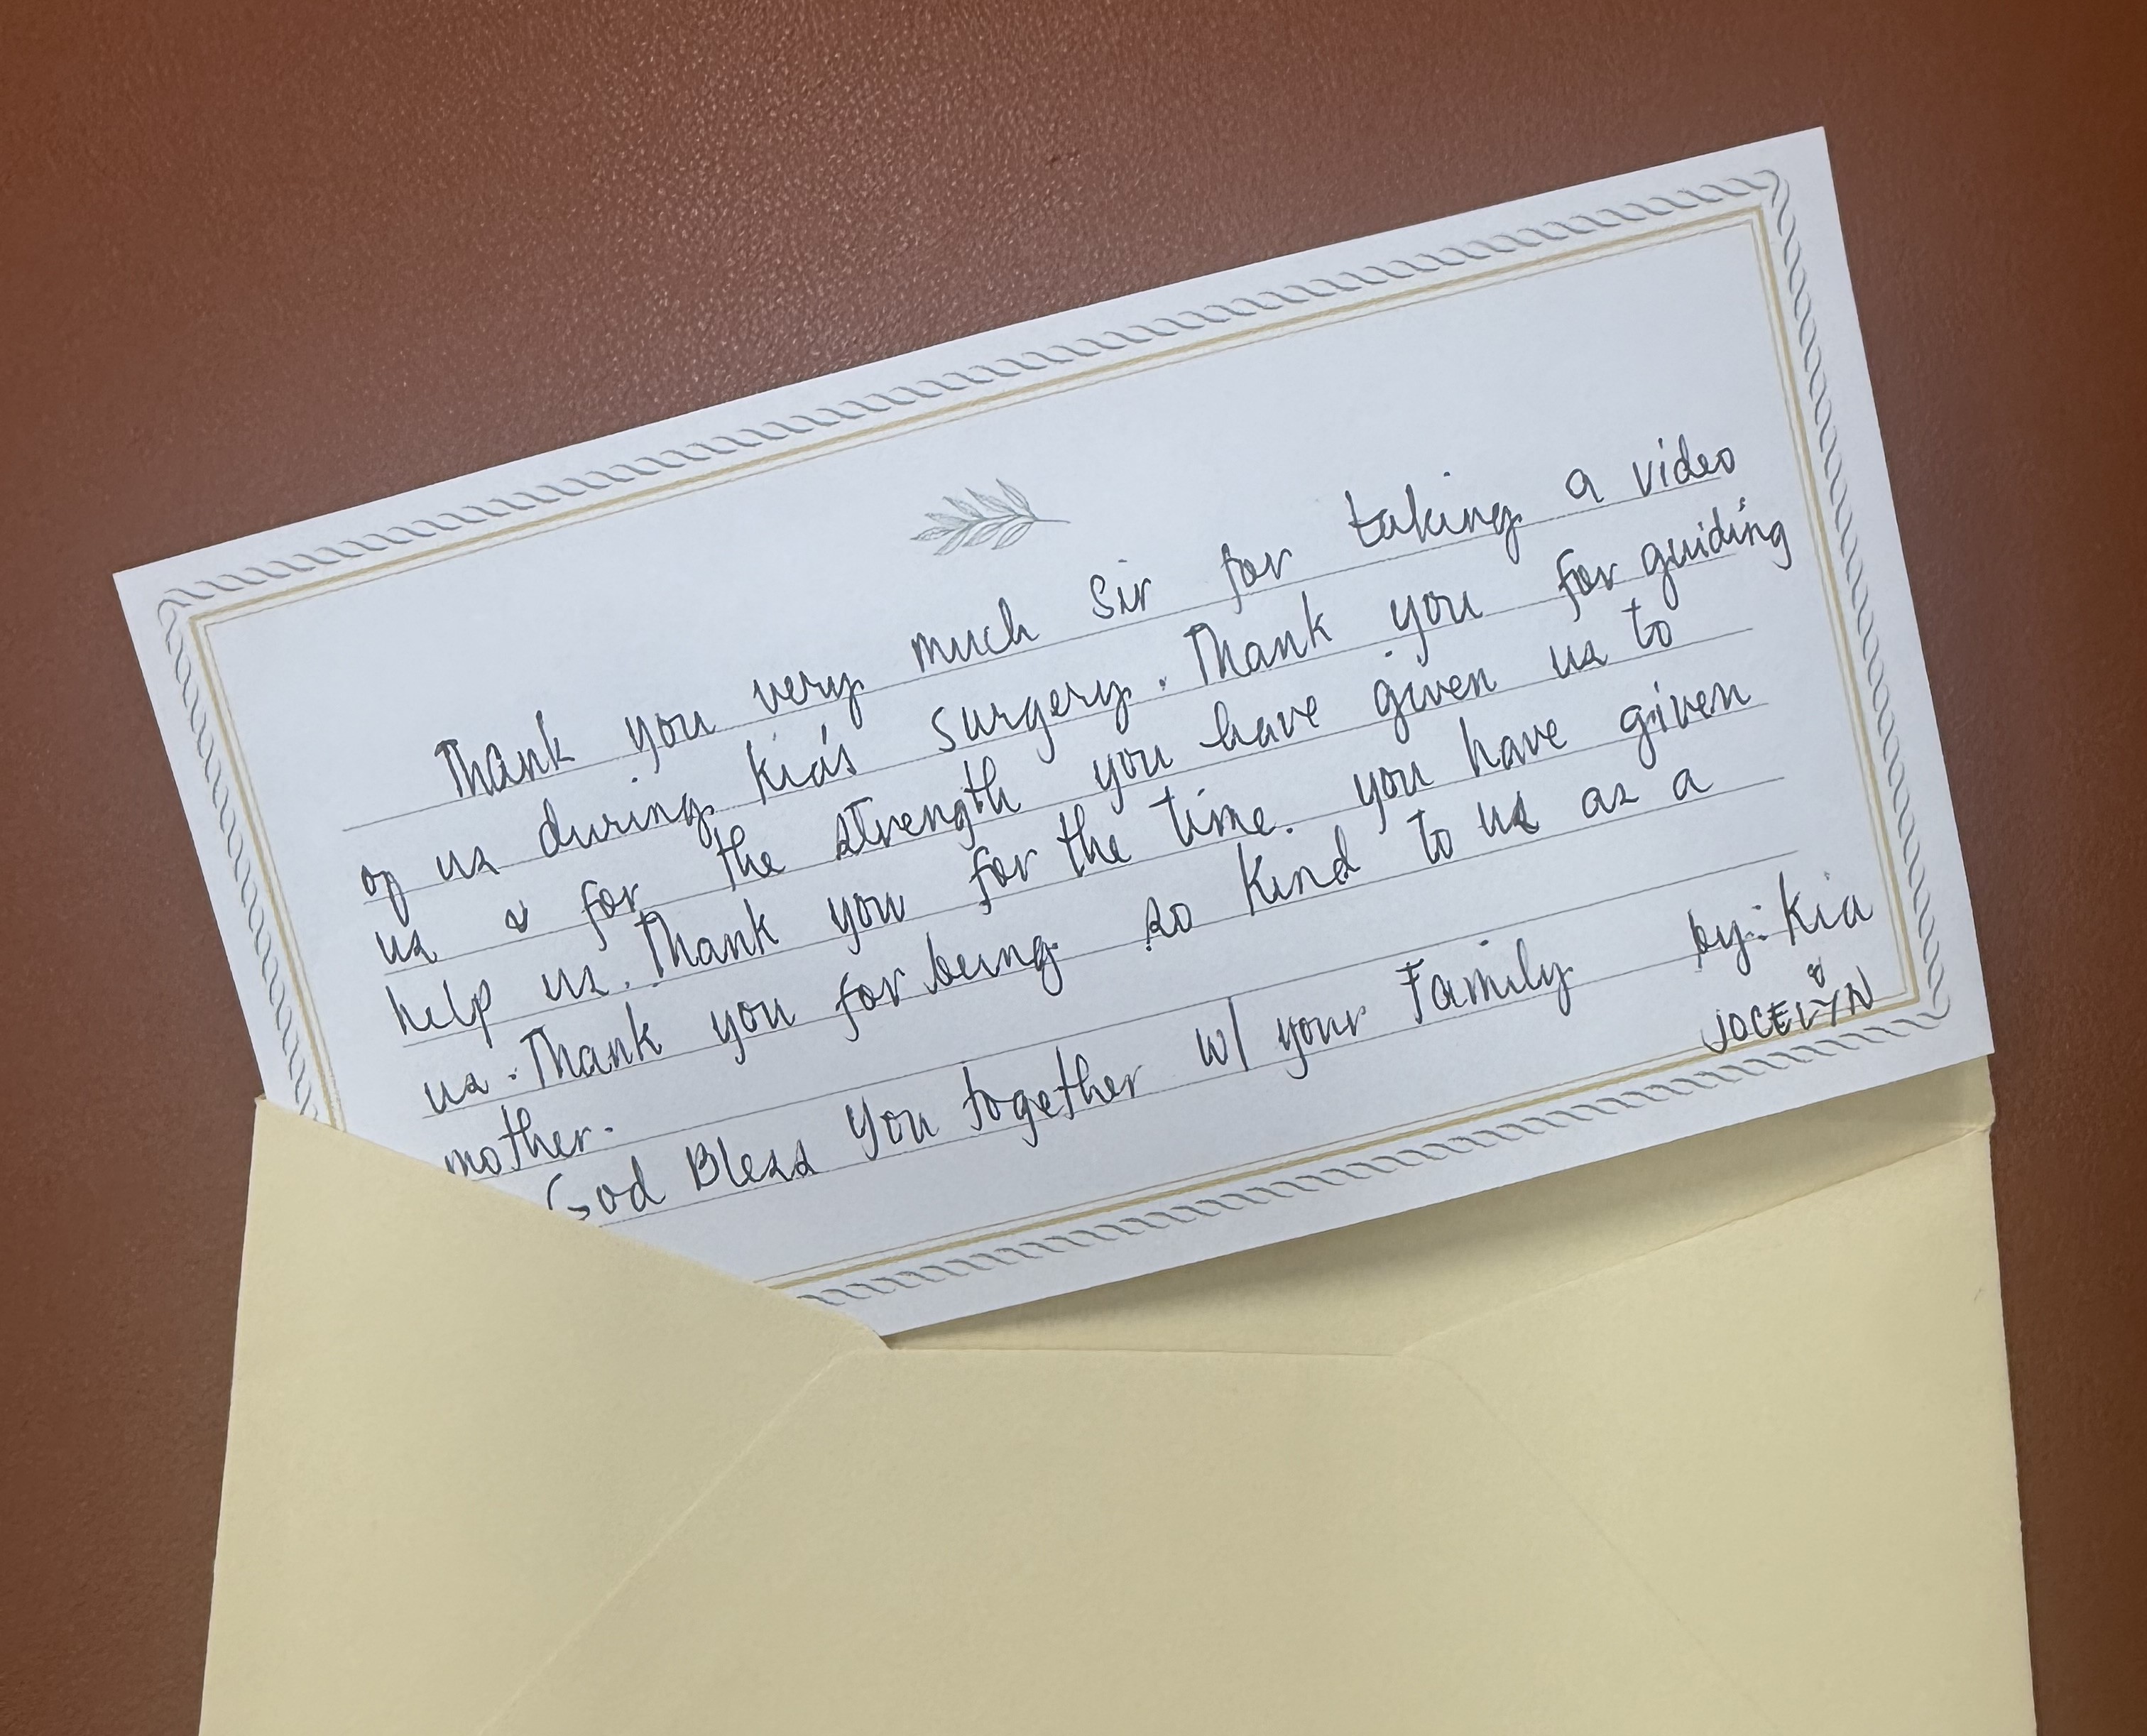 Thank you very much Sir for taking a video
of us during Kia's surgery. Thank you for guiding
us & for the strength you have given us to
help us. Thank you for the time. you have given
us. Thank you for being so kind to us as a
mother.
God Bless You together w/ your Family by: Kia
&
JOCELYN